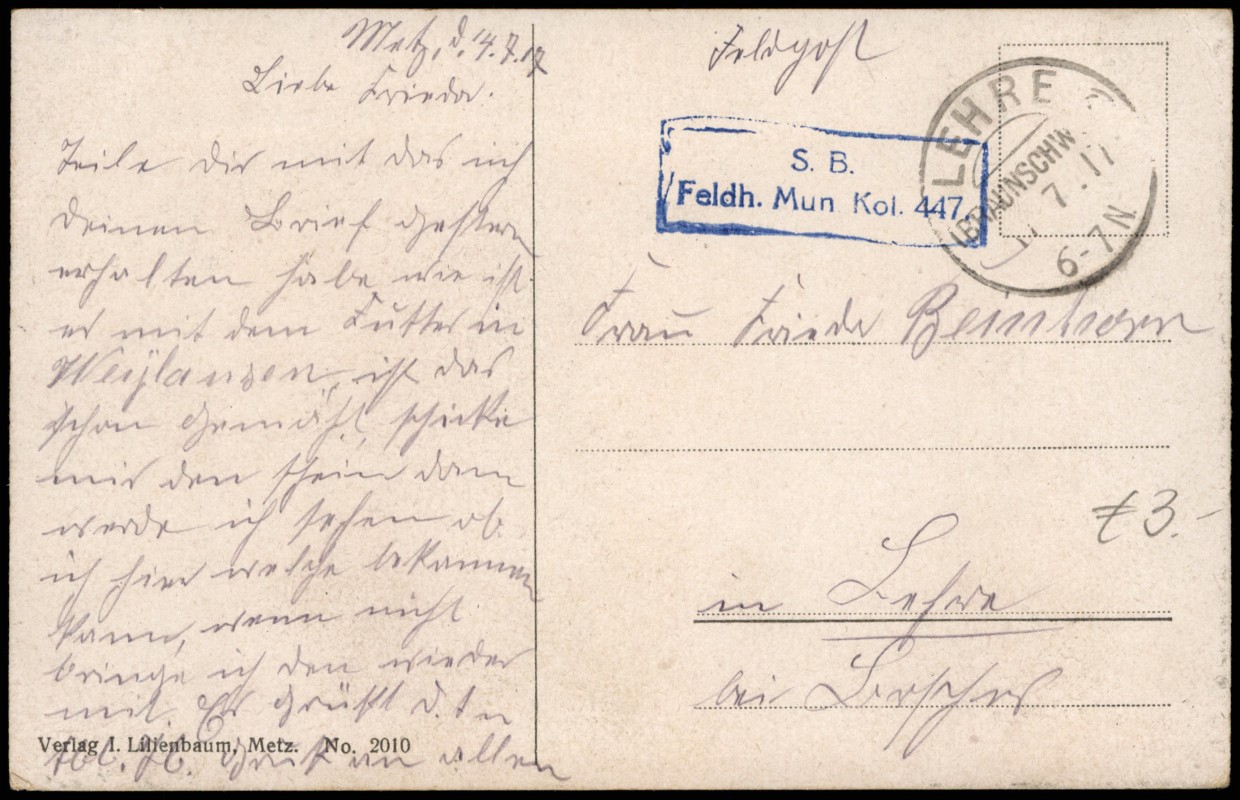 Metz, d. 4.7.17
Liebe Frieda.
Teile dir mit das ich
deinen Brief gestern
erhalten habe wie ist
es mit dem Futter in
ist das
schon gemäht, schicke
mir den schein dann
werde ich sehen ob
ich hier welche bekommen
kann, wenn nicht
bringe ich den wieder
mit. Es grüßt d.
Gruß an allen
Verlag I. Lilienbaum, Metz. No. 2010
Feldpost
S. B.
Feldh. Mun. Kol. 447.
LEHRE
(BRAUNSCHW
7.17
6-7N
Frau Frieda Beinhorn
in Lehre
bei
€3.-